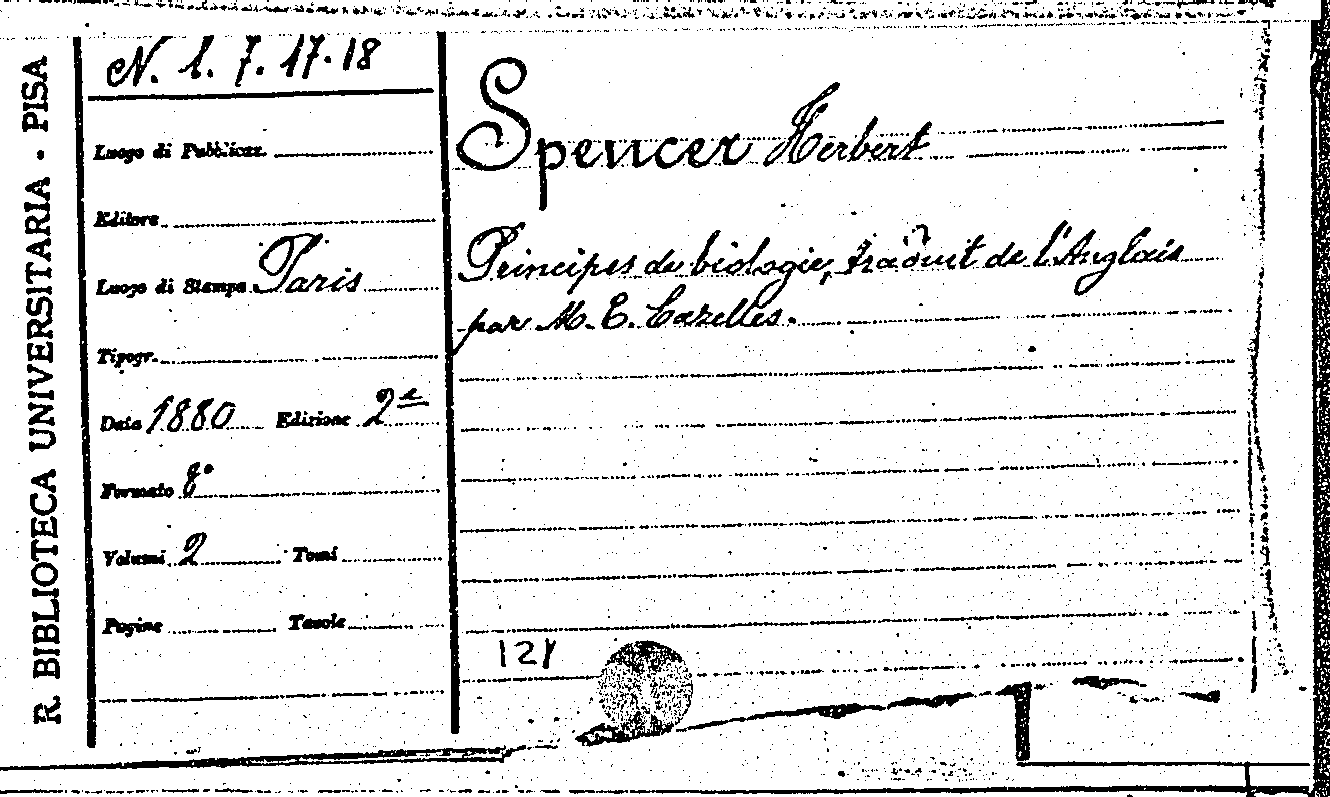 R. BIBLIOTECA UNIVERSITARIA - PISA
N. 1. 7. 17. 18
Luogo di Pubblicaz.
Editore
Luogo di Stampa Paris
Tipogr.
Data 1880 Edizione 2e
Formato 8°
Volumi 2 Tomi
Pagine Tavole
Spencer Herbert
Principes de biologie, traduit de l'Anglais
par M. E. Cazelles.
121